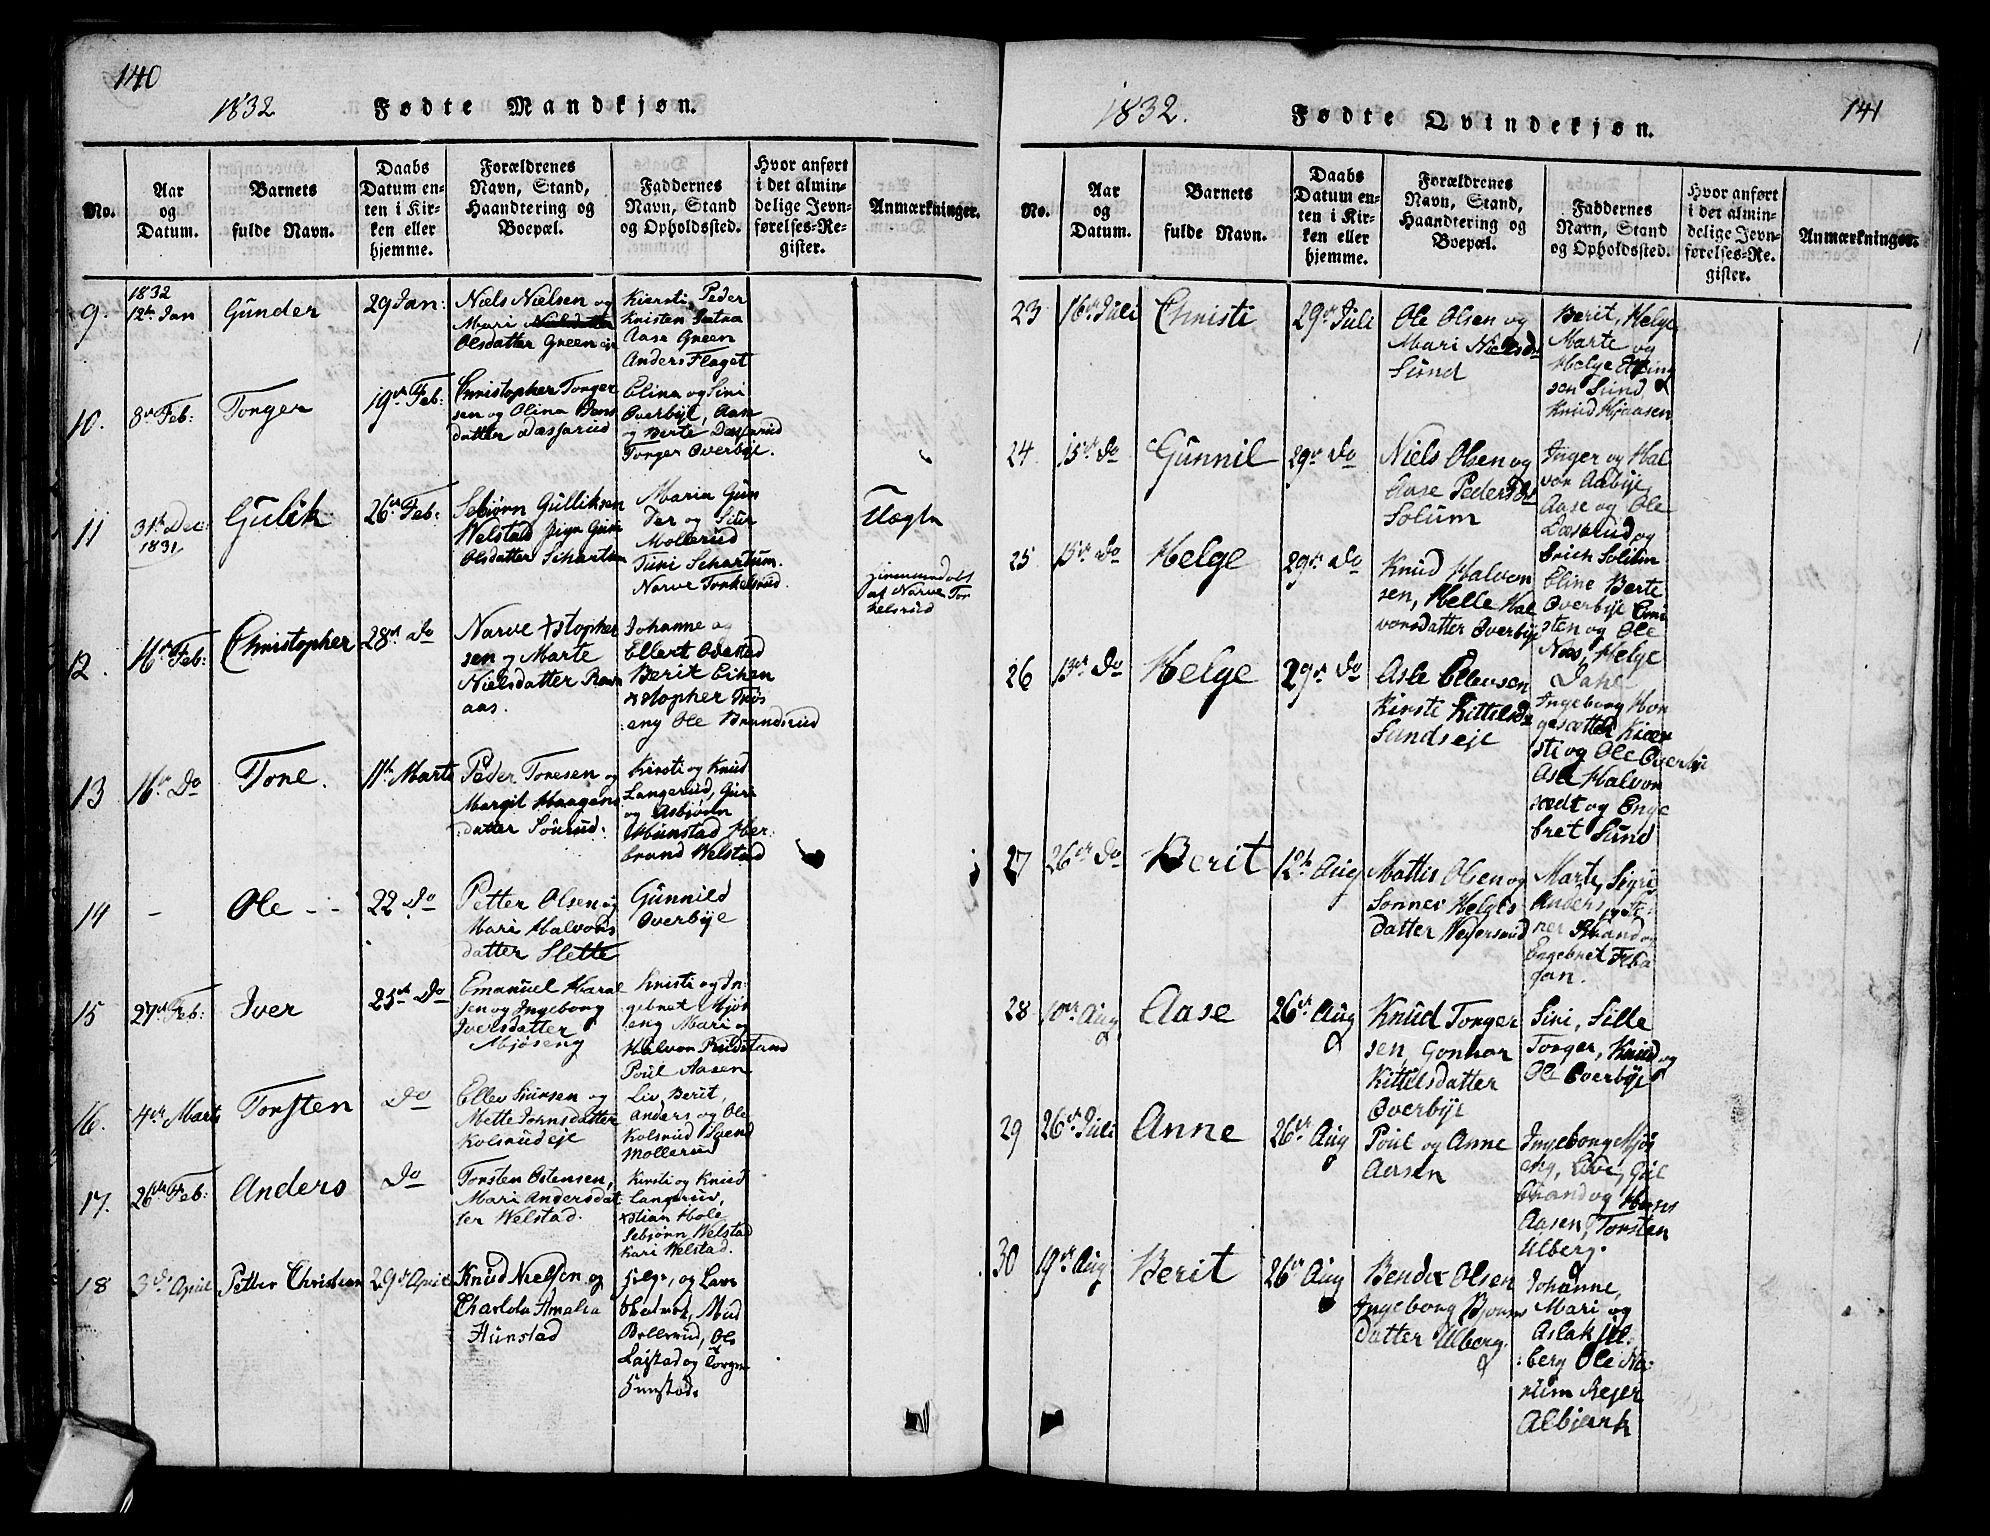 140
1832 Fødte Mandkjøn.
No.
Aar og Datum.
Barnets fulde Navn.
Daabs Datum enten i Kirken eller hjemme.
Forældrenes Navn, Stand, Haandtering og Boepæl.
Faddernes Navn, Stand og Opholdssted.
Hvor anført i det almindelige Jevnførelses-Register.
Anmærkninger.
9. 1832 12te Jan Gunder 29 Jan:
Niels Nielsen og
Mari
Olsdatter Green eje
Kiersti Peder
Kristen
Aase Green
Anders Flaget
10. 8de Feb: Torger 19de Feb:
Christopher Torger
sen og Olina
datter Dæsserud
Elina og Siri
Overbye, Aase
og Berte Dæsserud
Torger Overbye.
11 31te Dec: 1831 Gulik 26de Feb:
Sebjørn Gulliksen
Welstad Pige Guri
Olsdatter Schartum
Maria Gun
der og Siur
Mollerud
Turi Schartum.
Narve Torkelsrud
Uægte
af Narve Tor
kelsrud
12. 16de Feb: Christopher 28de Do
Narve Xstopher
sen og Marte
Nielsdatter Ravn
aas.
Johanne og
Ellert Odestad
Berit Eiken
Xstopher Trøs
eng Ole Brandsrud
13 16de Do Tore. 11te Marts
Peder Toresen og
Margit Haagens
datter Sørud:
Kirsti og Knud
Langerud, Guri
og Asbjørn
Hunstad Her:
brand Welstad
14 - Ole - - 22 Do
Petter Olsen og
Mari Halvors
datter Slette
Gunnild
Overbye
15 27de Feb: Iver 25de Do
Emanuel Haral
sen og Ingeborg
Iversdatter
Mjøseng
Kristi og In
gebret Mjøs
eng Mari og
Halvor Rudstand
Poul Aasen
16. 4de Marts Torsten Do
Ellev Siursen og
Mette Johnsdatter
Kolsrud eje
Liv Berit,
Anders og Ole
Kolsrud Svend
Mollerud
17. 26de Feb: Anders Do
Torsten Ostensen,
Mari Andersdat
ter Welstad.
Kirsti og Knud
Langerud,
Xstian Hole
Sebjørn Welstad
Kari Welstad.
18 3de April Petter Christian 29de April
Knud Nielsen og
Charlota Amalia
Hunstad
Helge, og Lars
Mad
Bollerud, Ole
Lajstad og Torger
Hunstad.
1832. Fødte Qvindekjøn. 141
No.
Aar og Datum.
Barnets fulde Navn.
Daabs Datum enten i Kirken eller hjemme.
Forældrenes Navn, Stand, Haandtering og Boepæl.
Faddernes Navn, Stand og Opholdssted.
Hvor anført i det almindelige Jevnførelses-Register.
Anmærkninger.
23 16de Juli Christi 29de Juli
Ole Olsen og
Mari Nielsdr
Sund
Berit, Helge
Marte og
Helge
sen Sund
Knud Hjaasen
24 15de Do Gunnil 29de Do
Niels Olsen og
Aase Pedersdr
Solum
Inger og Hal
vor Aabye,
Aase og Ole
Dæserud og
Erich Solum
25 15de Do Helge 29de Do
Knud Halvor
sen, Helle Hal
vorsdatter Overbye
Eline Berte
Overbye
sten og Ole
Næs, Helge
Dahl
26 13de Do Helge 29de Do
Asle Clausen
Kirste Kittelsdr
Sundseje
Ingeborg Hor
gesætter Kier
sti og Ole Overbye
Asle Halvor
vedt og Enge
bret Sund
27 26de Do Berit 12te Aug
Mattis Olsen og
Sønnev Helges
datter Vejersrud
Marte, Sigri
Anders, og Ste:
ner Brand og
Engebret
28 10de Aug Aase 26de Aug
Knud Torger
sen, Gonhor
Kittelsdatter
Overbye
Siri, Sille
Torger, Knud og
Ole Overbye
29 26de Juli Anne 26de Aug
Poul og Anne
Aasen
Ingeborg Mjøs
eng, Live, Gul
brand og Hans
Aasen, Torsten
Ulberg.
30 19de Aug Berit 26de Aug
Bendix Olsen
Ingeborg Bjørns
datter Ulberg.
Johanne,
Mari og
Aslak Ul:
berg Ole Na:
rum Rejer
Albjerk